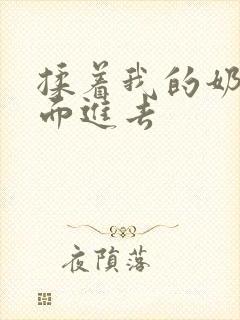 揉着我的奶
而进去
夜陨落